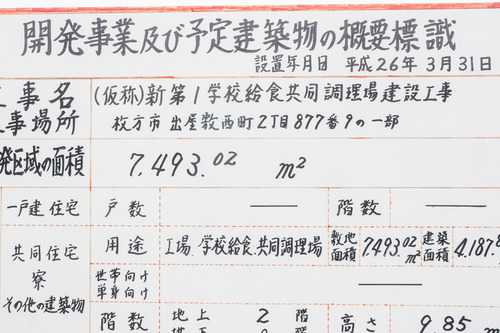 開発事業及び予定建築物の概要標識
設置年月日 平成26年3月31日
工事名 (仮称)新第1学校給食共同調理場建設工事
工事場所 枚方市出屋敷西町2丁目877番9の一部
発区域の面積 7.493.02 m²
一戸建住宅 戸数 ── 階数 ──
共同住宅 寮 その他の建築物
用途 工場 学校給食共同調理場 敷地面積 7493.02m² 建築面積 4,187.
世帯向け 単身向け ──
階数 地上 2 階 高さ 9.85 m